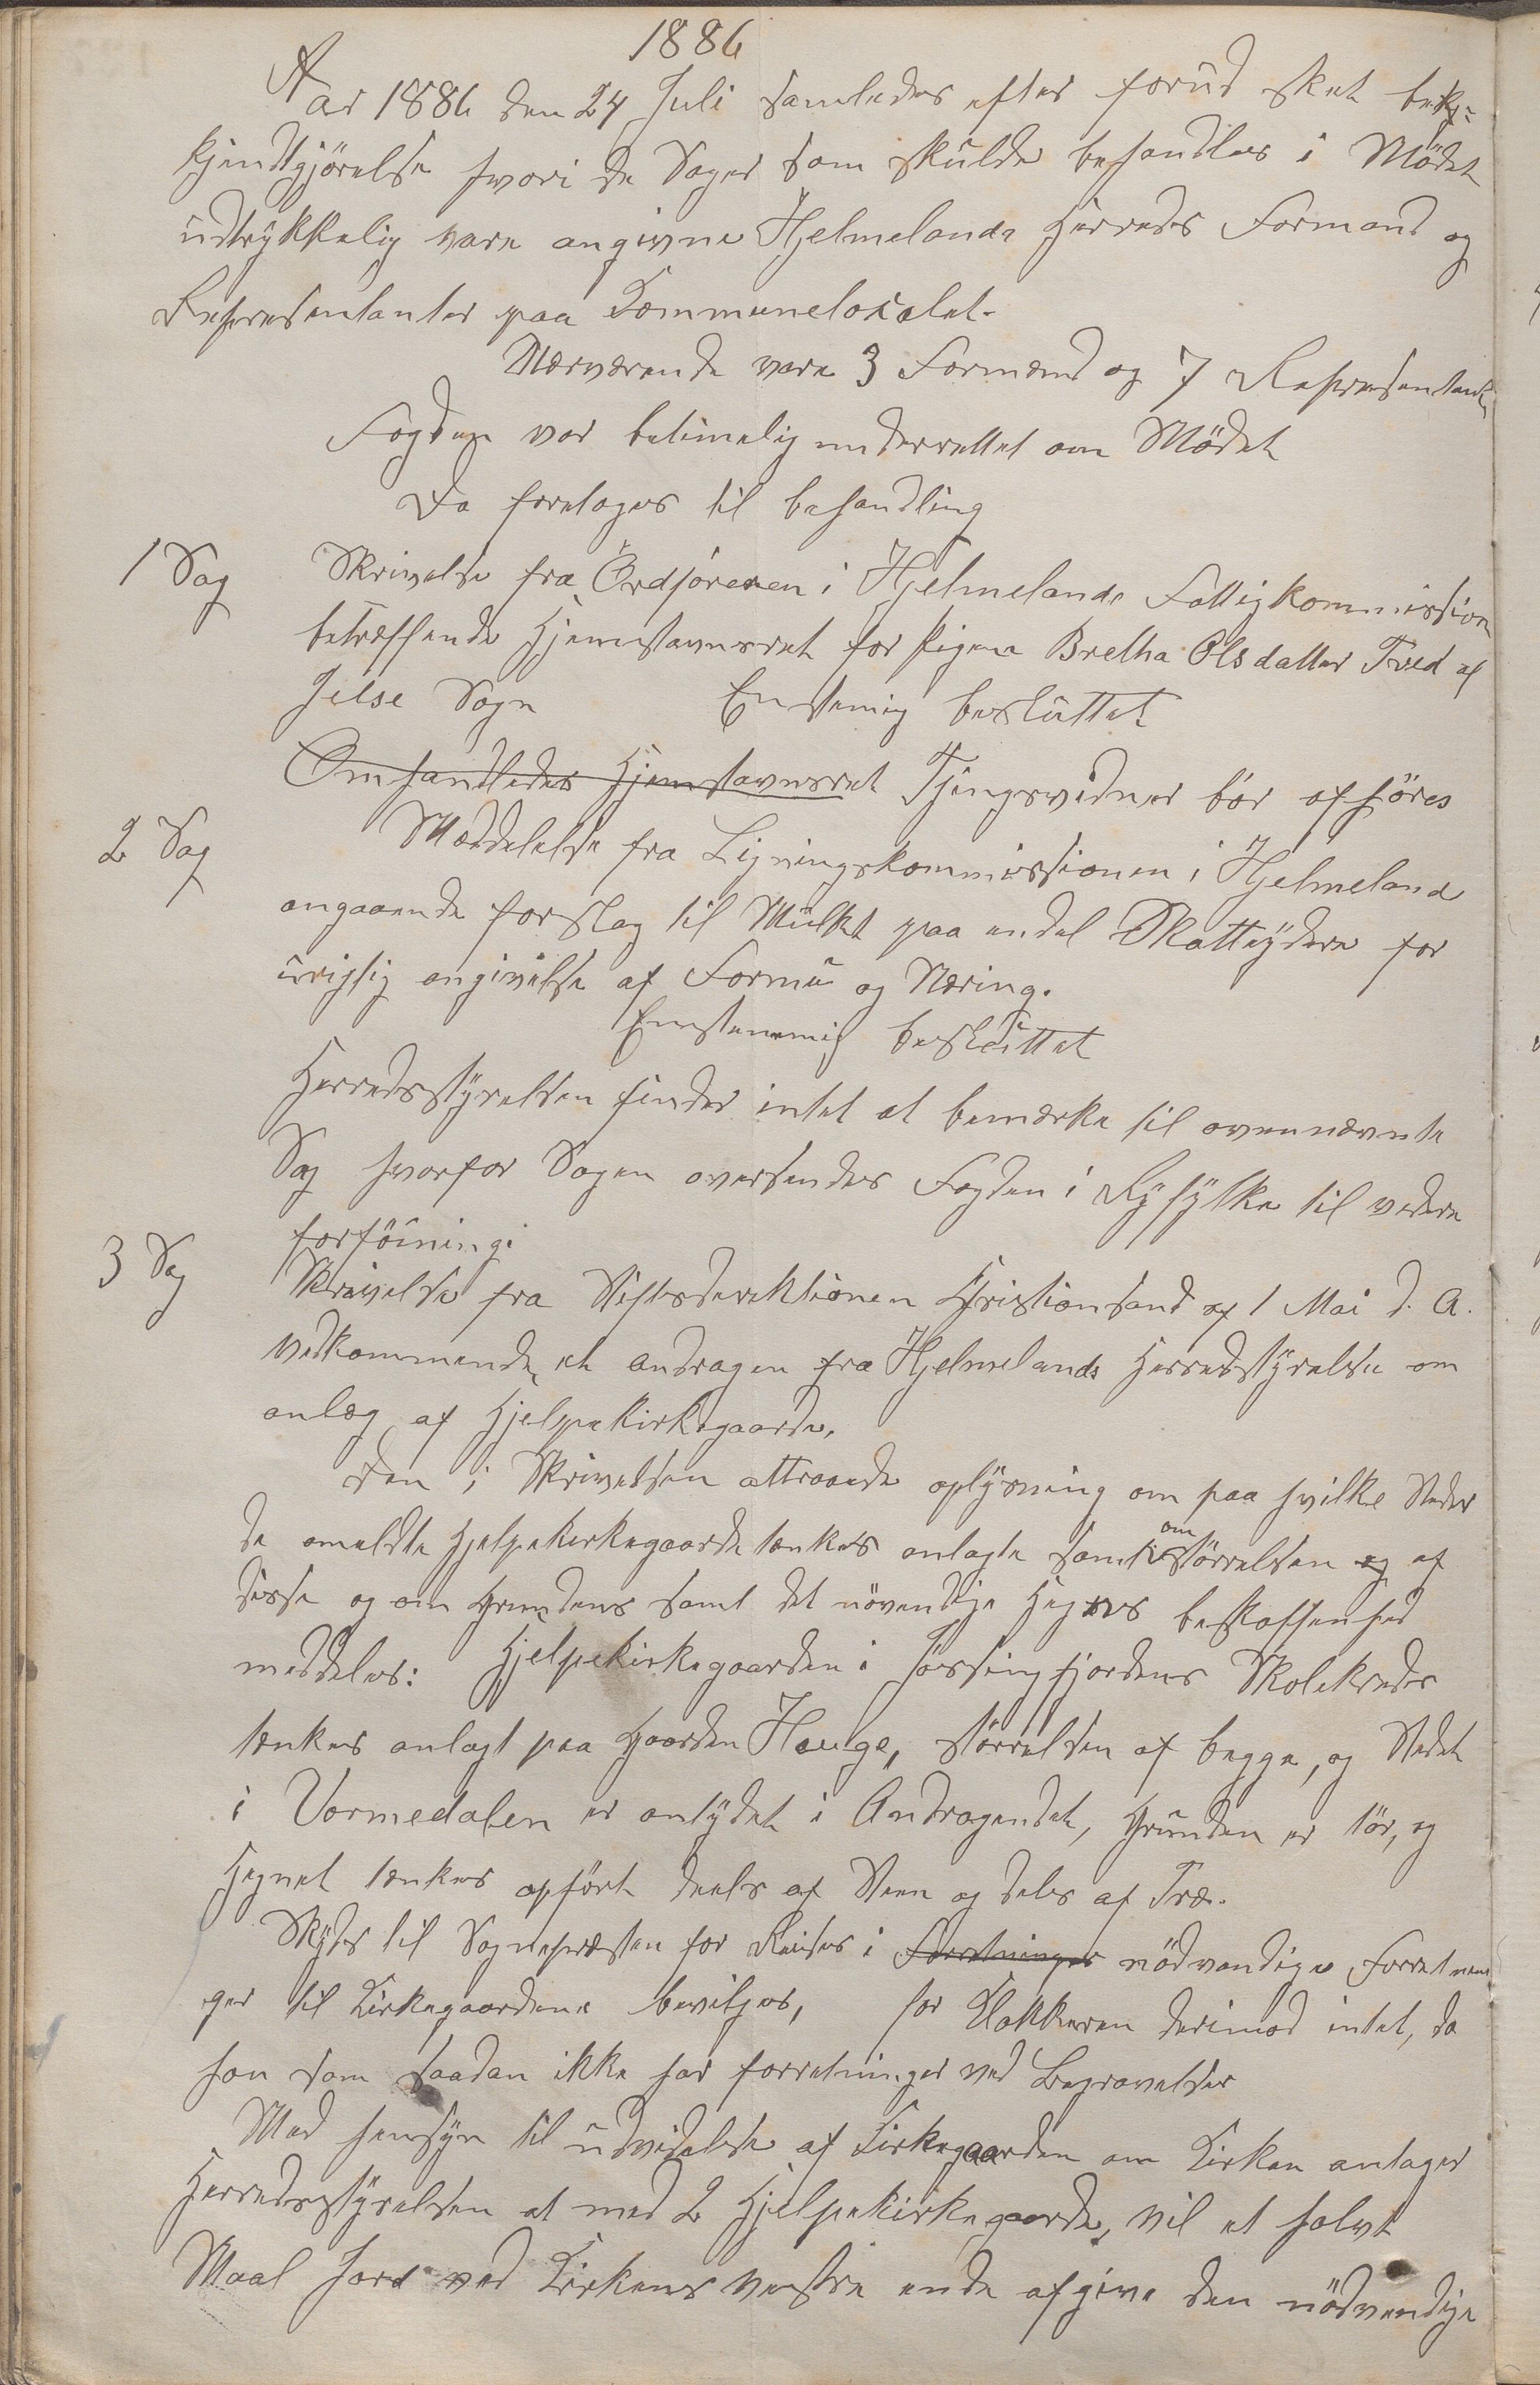 1886
Aar 1886 den 24 Juli samledes efter forud sket bek=
kjendtgjörelse hvori de Sager som skulde behandles i Mödet
udtrykkelig vare angivne Hjelmelands Herreds Formand og
Repræsentanter paa Kommunelokalet.
Nærværende vare 3 Formænd og 7 Repræsentanter
Fogden var betimelig underrettet om Mödet
Da foretages til behandling
1 Sag Skrivelse fra Ordföreren i Hjelmelands Fattigkommission
betræffende Hjemstavnsret for Pigen Bretha Olsdatter Tved af
Jelse Sogn Enstemig besluttet
Omhandledes Hjemstavnsret Thingsvidner bör afföres
2 Sag Meddelelse fra Ligningskommissionen i Hjelmeland
angaaende forslag til Mulkt paa endel Skatteydere for
urigtig angivelse af Formue og Næring.
Enstemmig besluttet
Herredsstyrelsen finder intet at bemærke til ovennævnte
Sag hvorfor Sagen oversendes Fogden i Ryfylke til vedere
forföining.
3 Sag Skrivelse fra Stiftsdirektionen Christiansand af 1 Mai d. A.
vedkommende et andragen fra Hjelmelands Herredsstyrelse om
anlæg af Hjelpekirkegaarde.
Den i Skrivelsen attraaede oplysning om paa hvilke Steder
de omeldte Hjelpekirkegaarde tænkes anlagte samt om störrelsen og af
disse og om Grundens samt det növendige Hegns beskaffenhed
meddeles: Hjelpekirkegaarden i Jössingfjordens Skolekreds
tænkes anlagt paa Gaarden Hauge, störrelsen af begge, og Stedet
i Vormedalen er antydet i Andragendet, Grunden er tör, og
Hegnet tænkes opfört deels af Steen og dels af Træ.
Skyds til Sognepræsten for Reiser i Forretninger nödvendige Forretnin
ger til Kirkegaardene bevilges, for Klokkeren derimod intet, da
han som saadan ikke har forretninger ved Begravelser
Med hensyn til udvidelse af Kirkegaarden om Kirken antager
Herredsstyrelsen at med 2 Hjelpekirkegaarde, vil et halvt
Maal Jord ved Kirkens vestre ende afgive den nödvendige